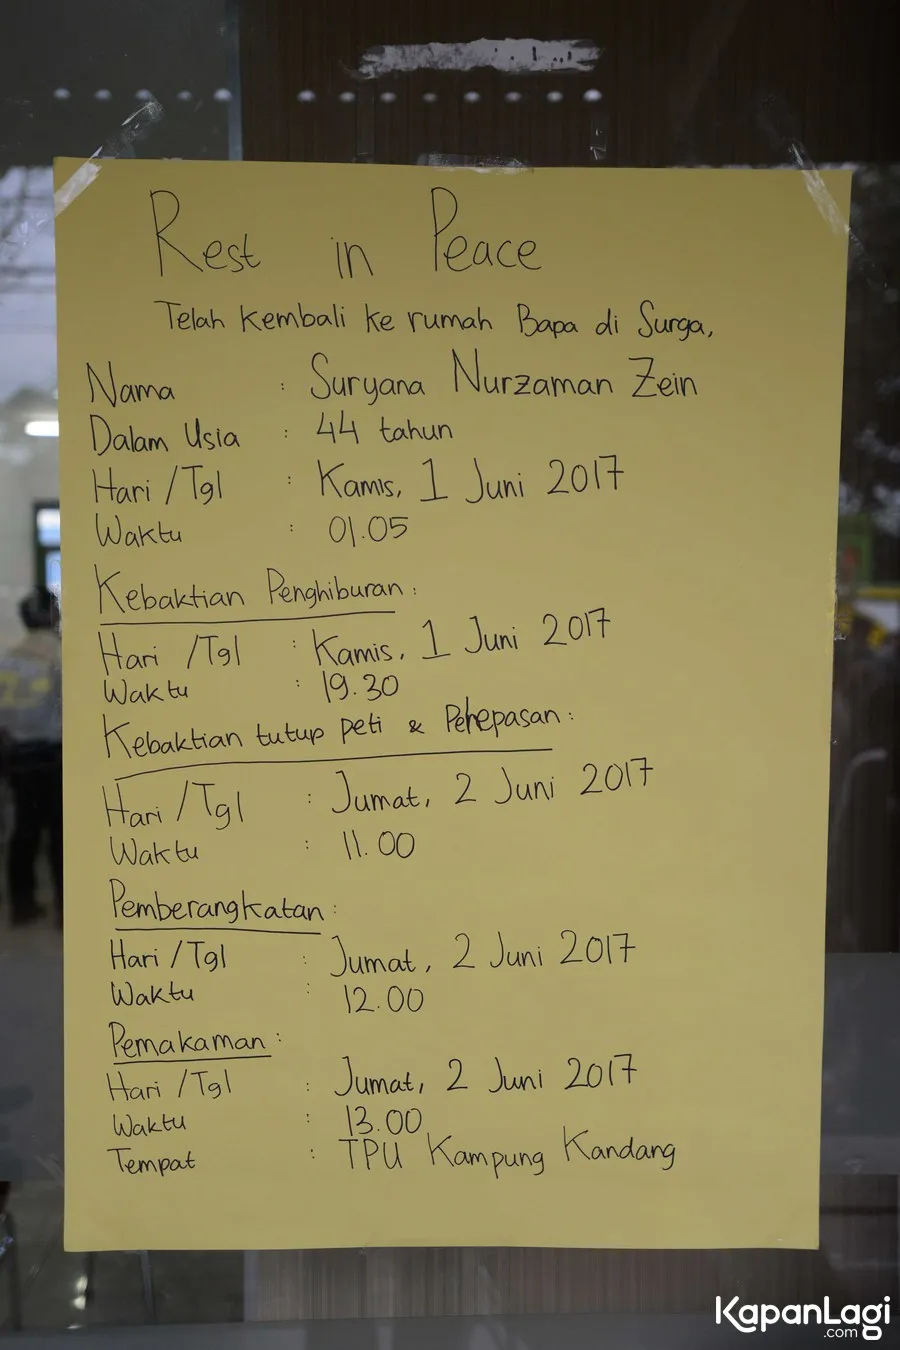 Rest in Peace
Telah Kembali ke rumah Bapa di Surga,
Nama : Suryana Nurzaman Zein
Dalam Usia : 44 tahun
Hari / Tgl : Kamis, 1 Juni 2017
Waktu : 01.05
Kebaktian Penghiburan :
Hari / Tgl : Kamis, 1 Juni 2017
Waktu : 19.30
Kebaktian tutup peti & Pelepasan :
Hari / Tgl : Jumat, 2 Juni 2017
Waktu : 11.00
Pemberangkatan :
Hari / Tgl : Jumat, 2 Juni 2017
Waktu : 12.00
Pemakaman :
Hari / Tgl : Jumat, 2 Juni 2017
Waktu : 13.00
Tempat : TPU Kampung Kandang
KapanLagi
.com